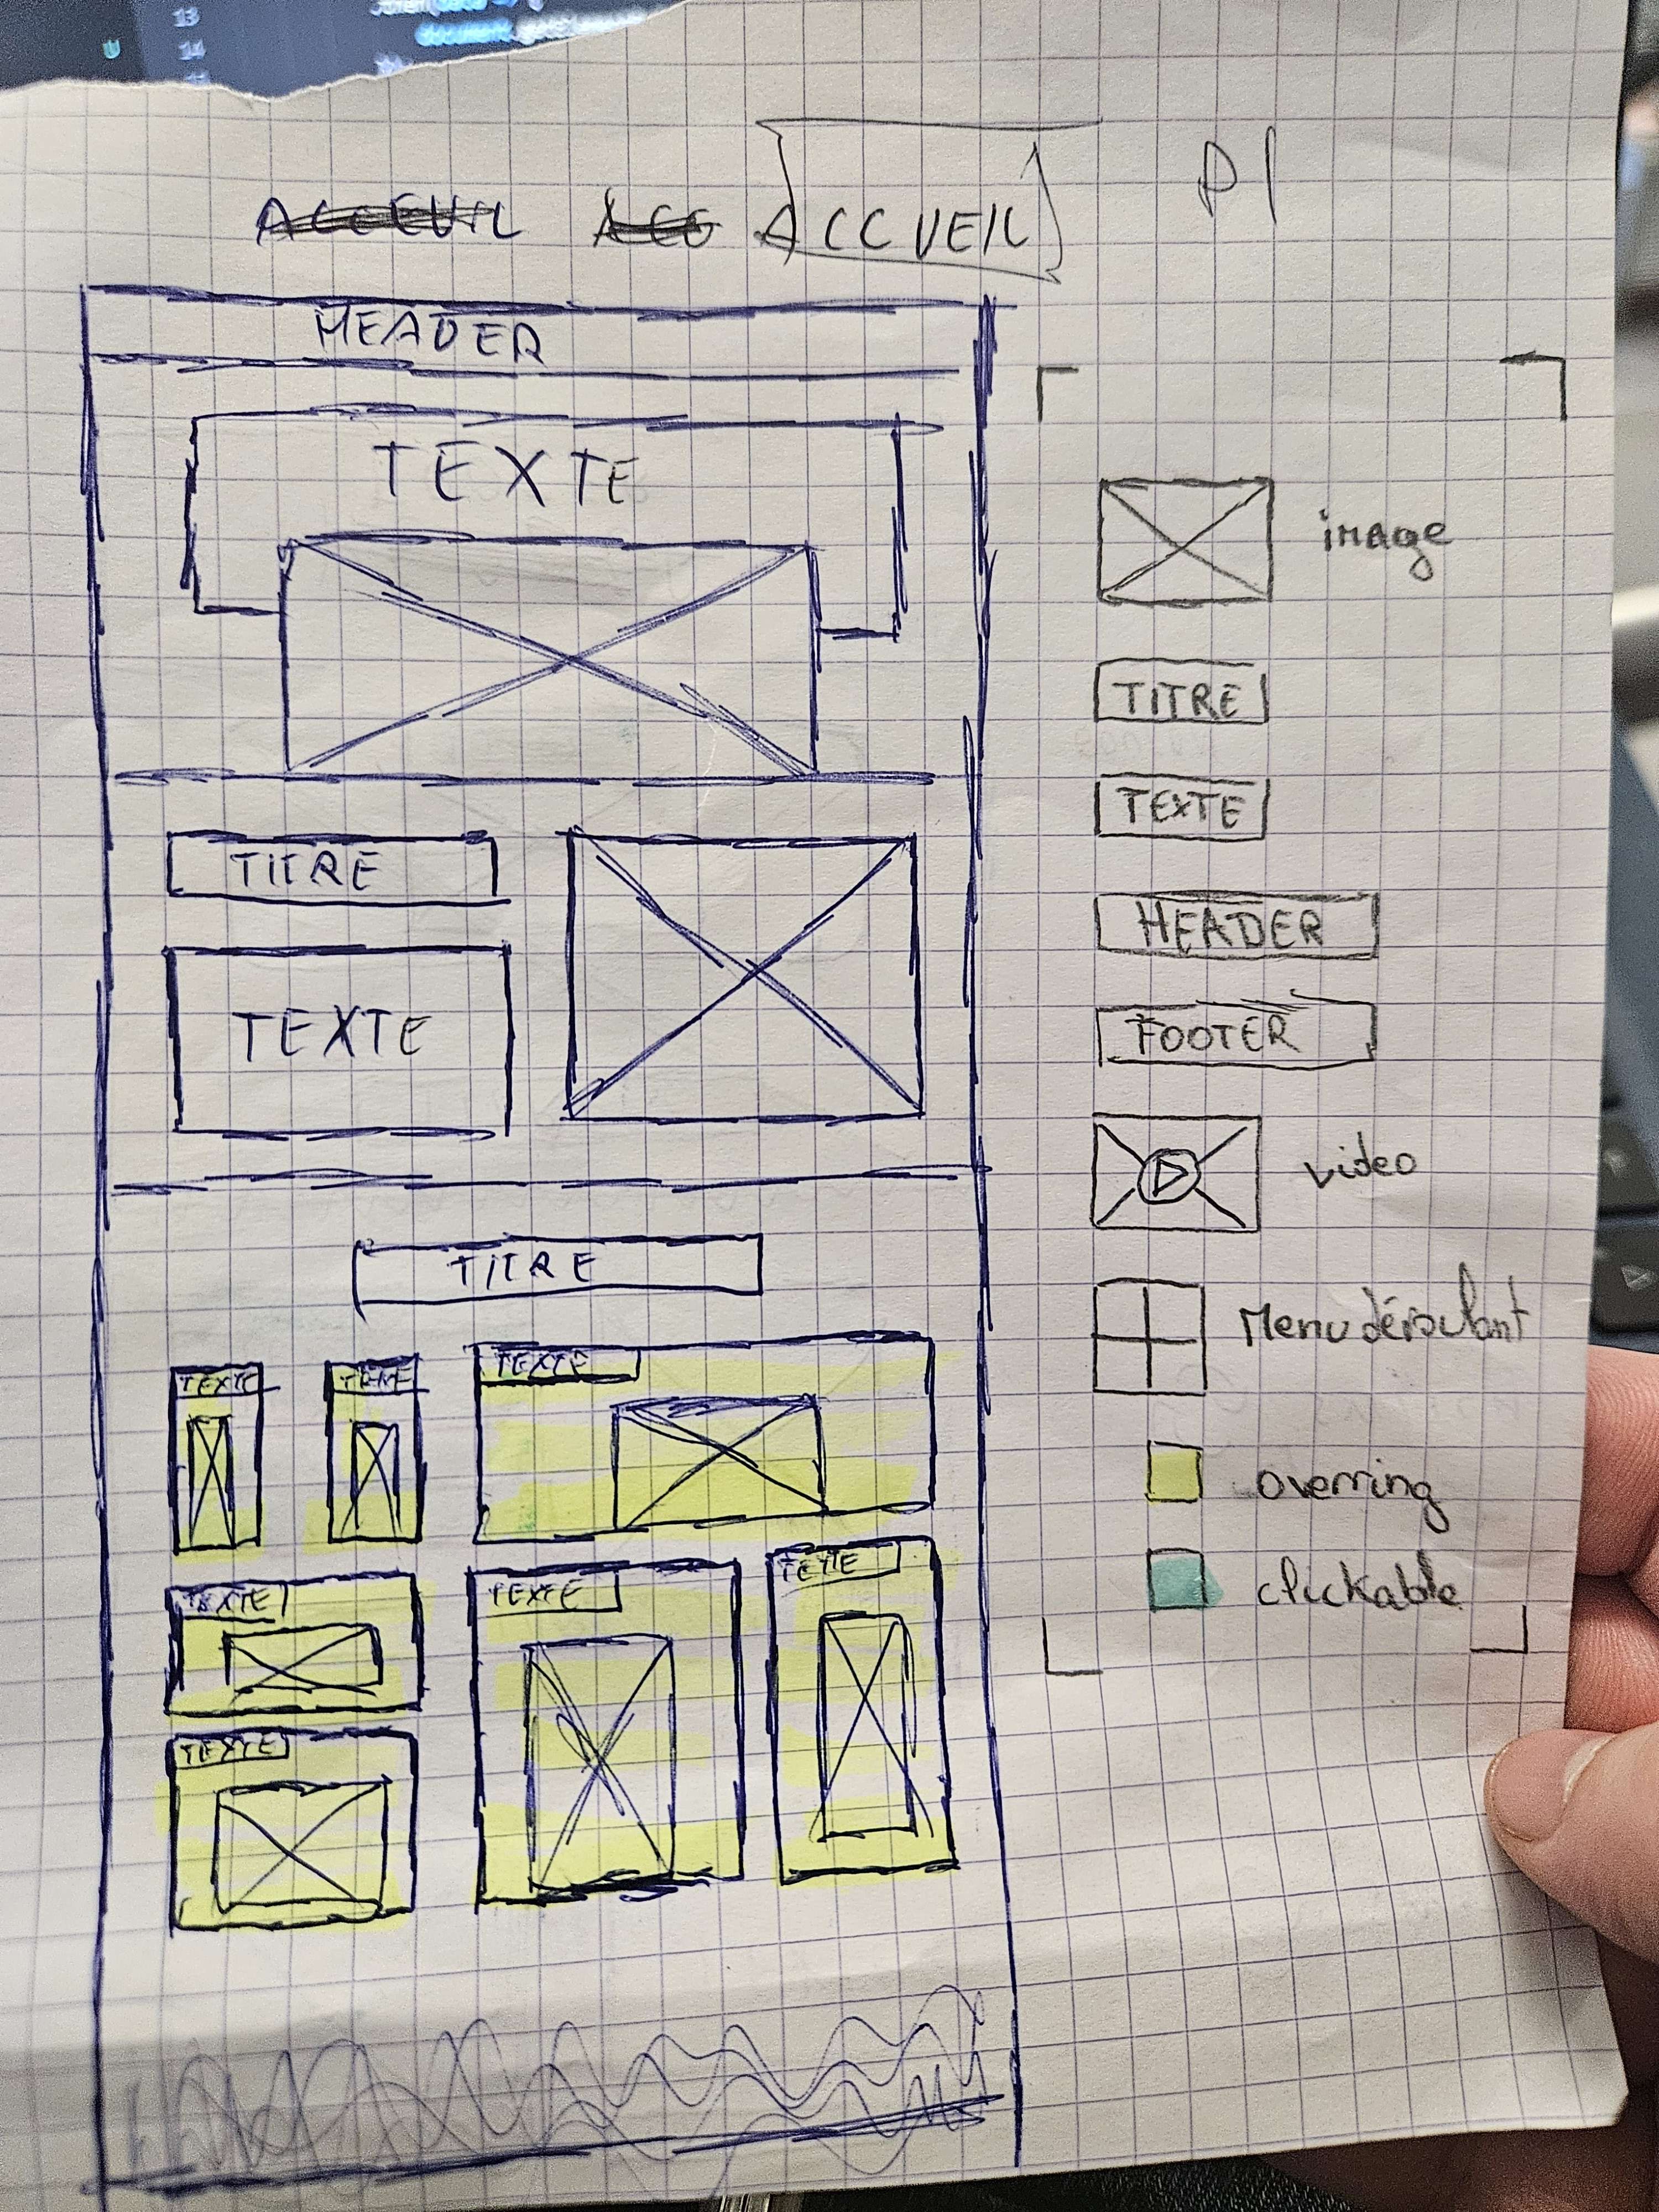 13
14
ACCEUIL ACC ACCUEIL
P1
HEADER
TEXTE
TITRE
TEXTE
TITRE
TEXTE
TEXTE
TEXTE
TEXTE
TEXTE
TEXTE
image
TITRE
TEXTE
HEADER
FOOTER
video
Menu déroulant
overring
clickable